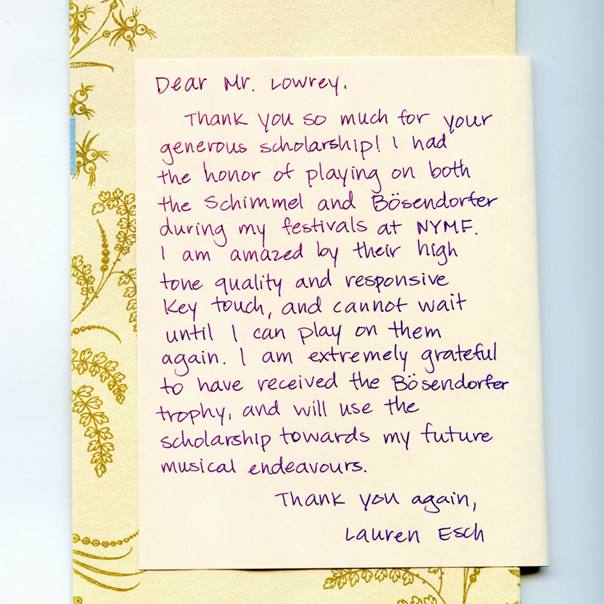 Dear Mr. Lowrey,
Thank you so much for your
generous scholarship! I had
the honor of playing on both
the Schimmel and Bösendorfer
during my festivals at NYMF.
I am amazed by their high
tone quality and responsive
key touch, and cannot wait
until I can play on them
again. I am extremely grateful
to have received the Bösendorfer
trophy, and will use the
scholarship towards my future
musical endeavours.
Thank you again,
Lauren Esch